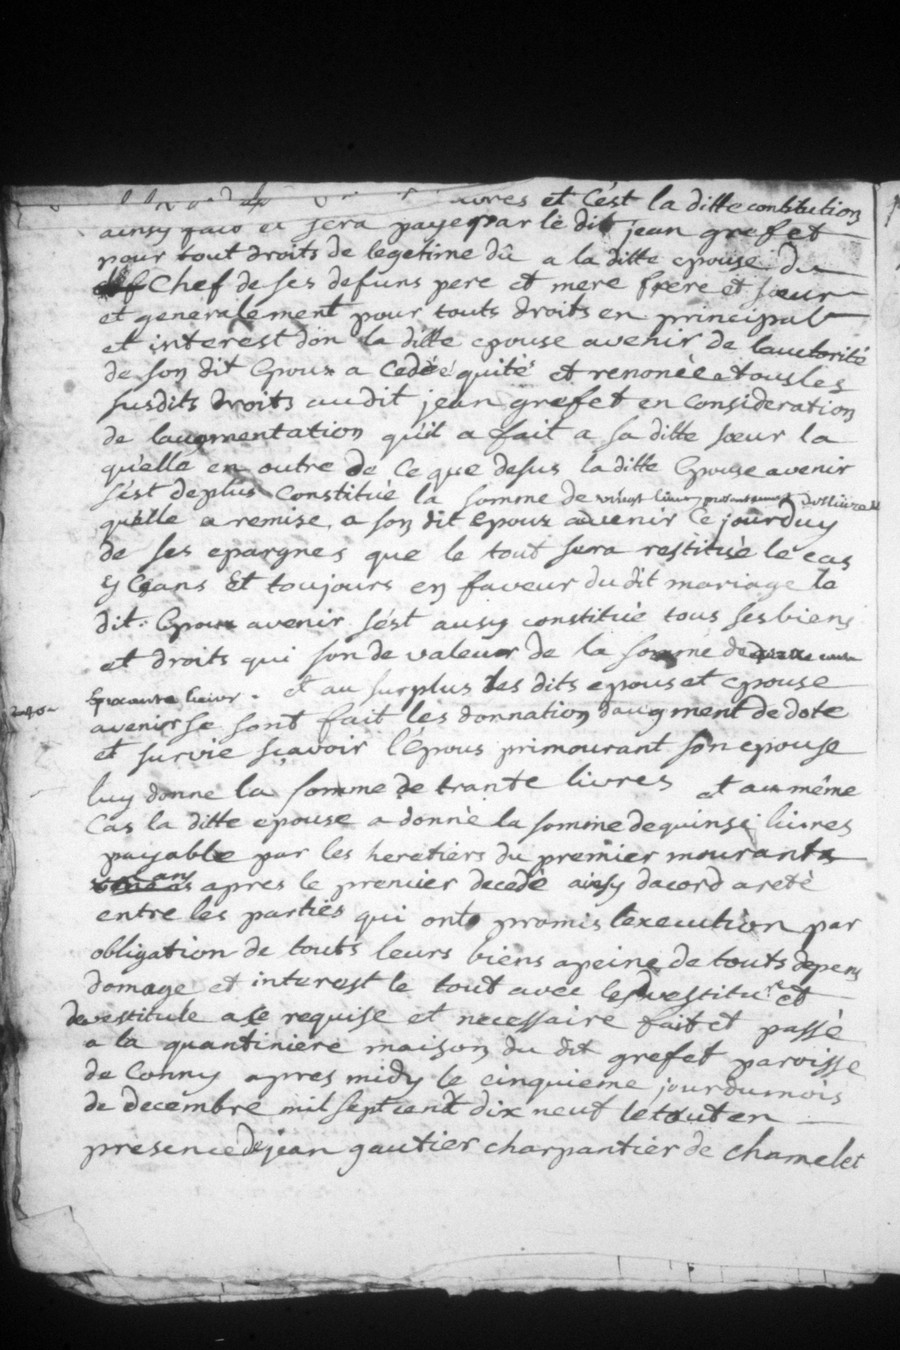 livres et C'est la ditte conbtitution
ainsy et sera payee par le dit jean grefet
pour tout droits de legetime dû a la ditte epouse du
Chef de ses defuns pere et mere frere et sœur
et generalement pour touts droits en principal
et interest don la ditte epouse avenir de lautorité
de son dit Epoux a Cedéé quité et renonèe a tous les
susdits droits audit jean grefet en Consideration
de laugmentation qu'il a fait a sa ditte sœur la
qu'elle en outre de Ce que desus la ditte Epouse avenir
s'est deplus Constituè la somme de vingt livres
qu'elle a remise a son dit Epoux advenir Ce jourduy
de ses epargnes que le tout sera restituè le cas
y Ceans Et toujours en faveur du dit mariage le
dit Epoux avenir s'est ausy constituè tous ses biens
et droits qui son de valeur de la somme de
et au surplus les dits epous et epouse
avenir se sont fait les donnation daugment de dote
et survie sçavoir l'Epous primourant son epouse
luy donne la somme de trante livres et au même
Cas la ditte epouse a donnè la somme de quinse livres
payable par les heretiers du premier mourant
ans apres le premier decedè ainsy dacord aretè
entre les parties qui onto promis lexecution par
obligation de touts leurs biens apeine de touts depens
domage et interest le tout avec les et
devestitule a se requise et necessaire fait et passè
a la quantiniere maison du dit grefet paroisse
de Conny apres midy le cinquieme jour du mois
de decembre mil sept cent dix neuf le tout en
presence de jean gautier charpantier de chamelet